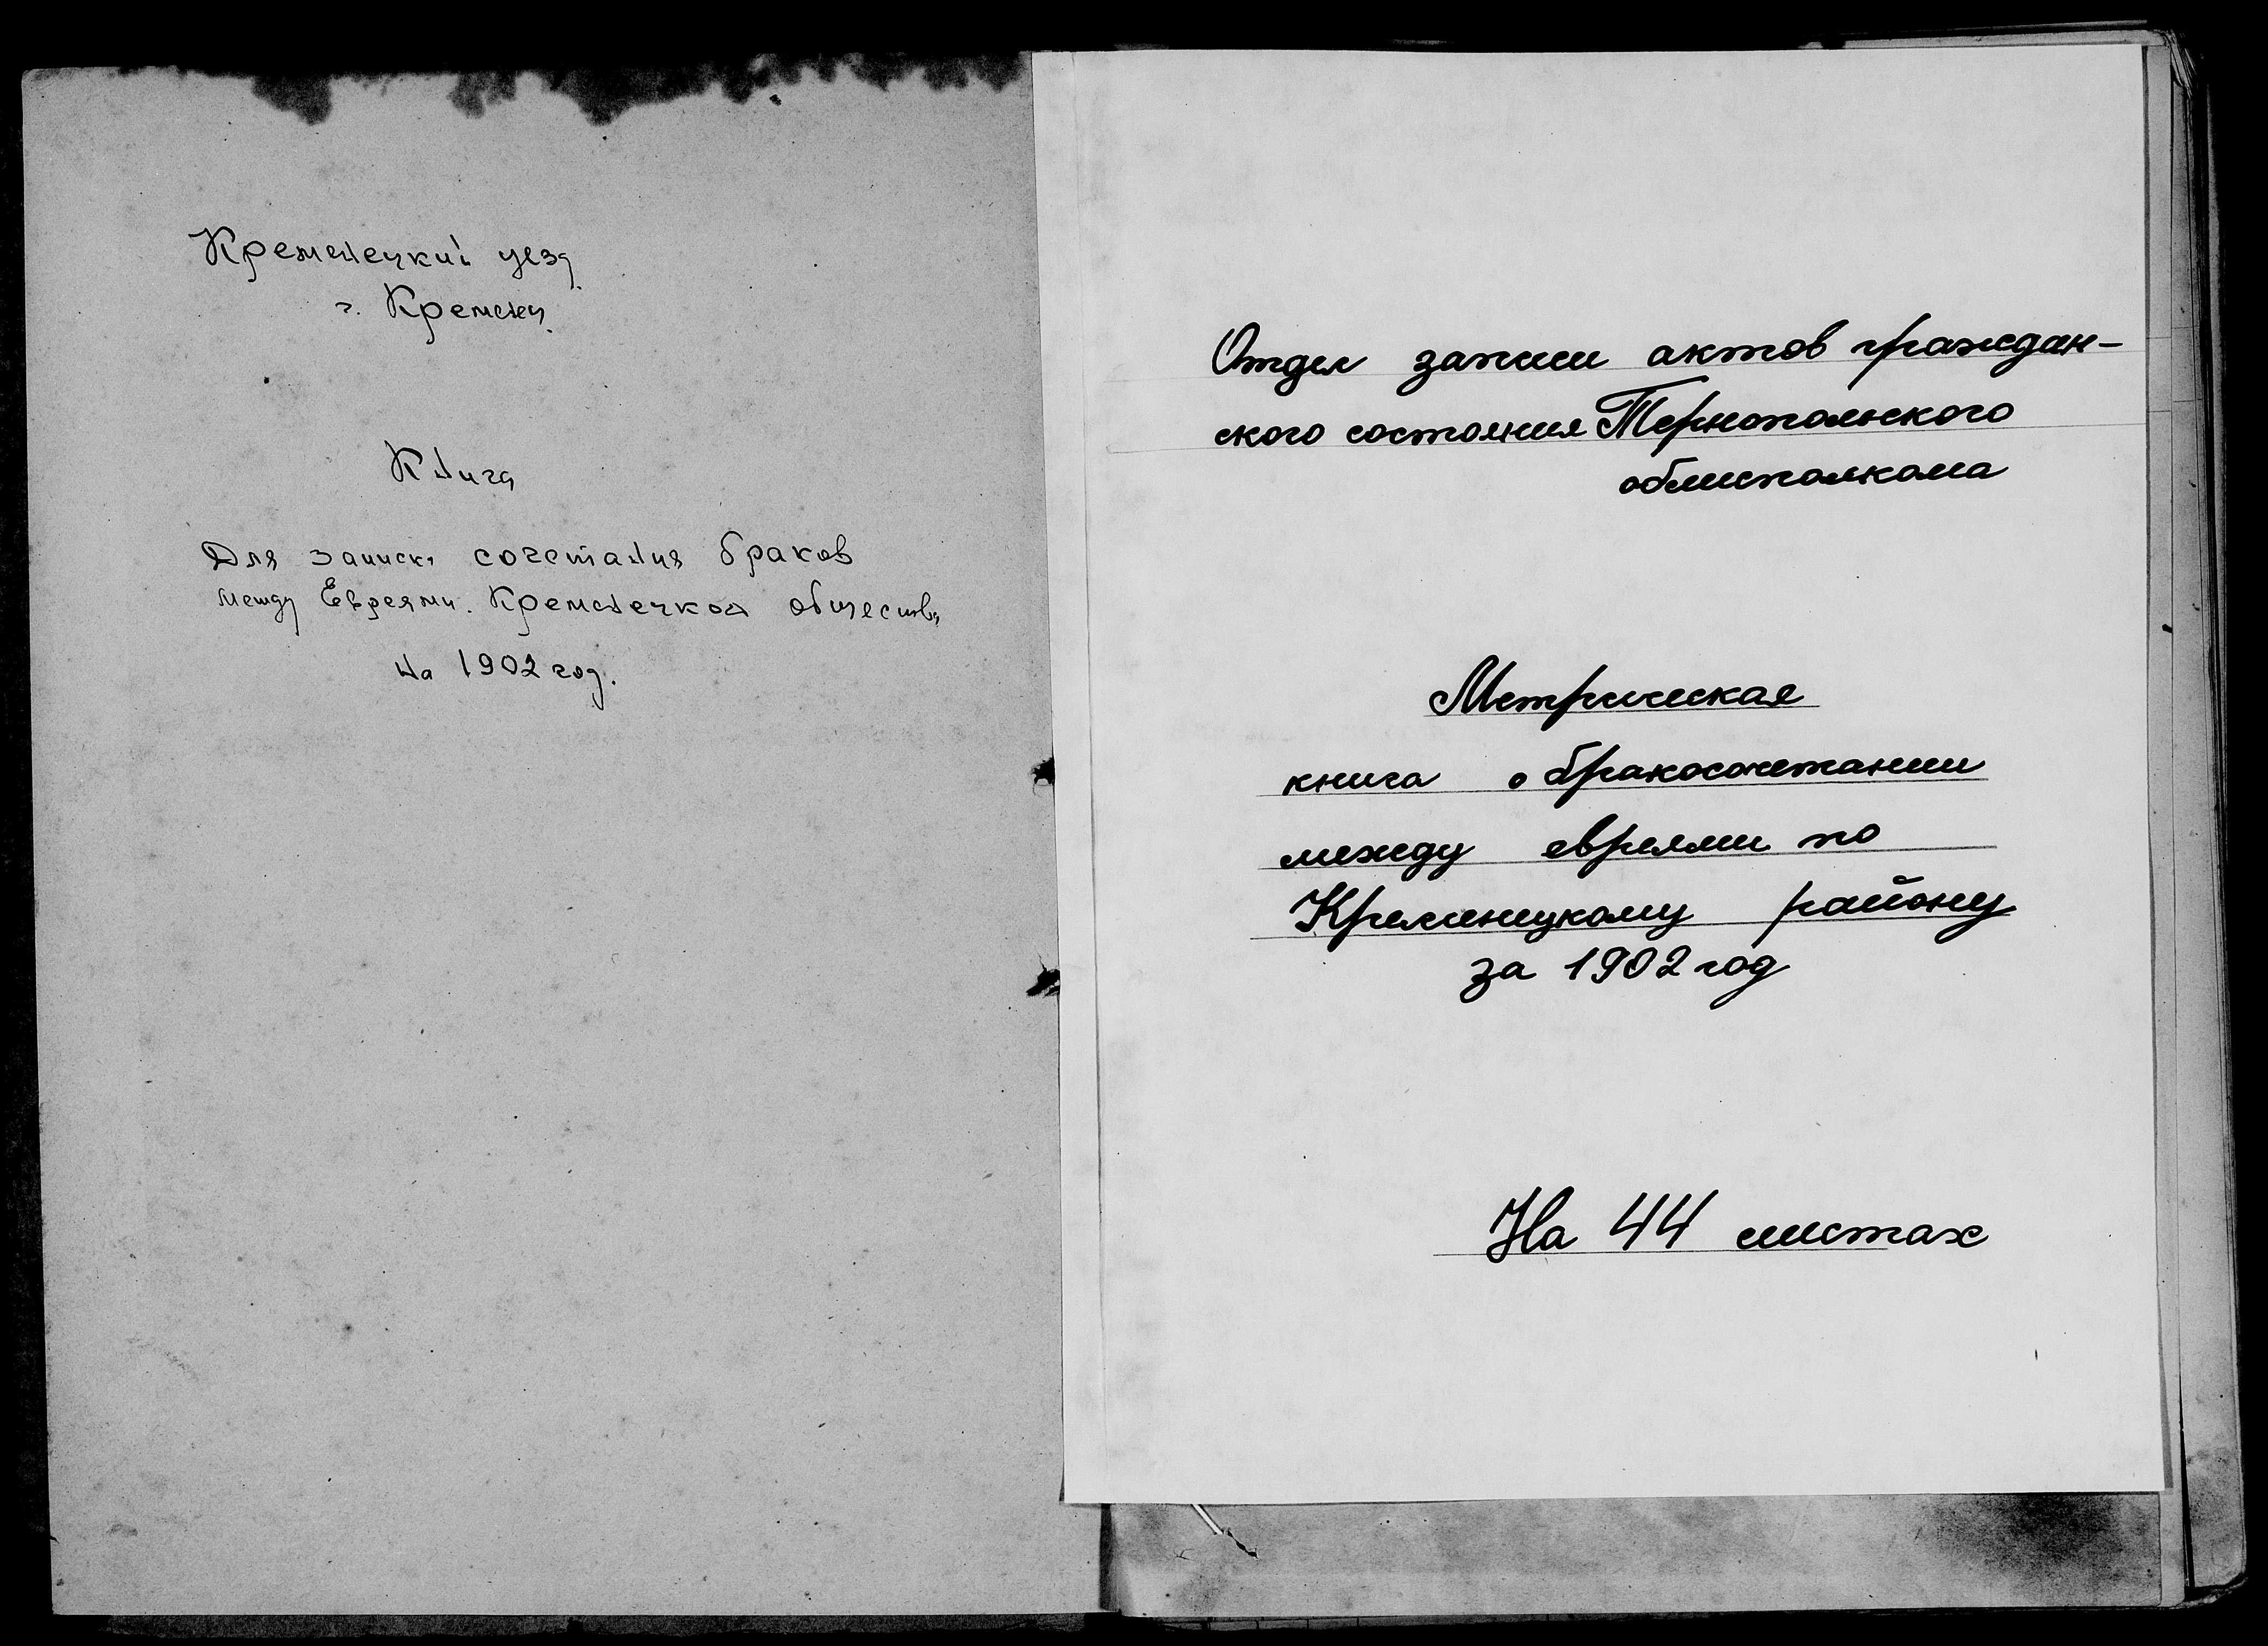 Кременецкий уезд.
г. Кременец.
Книга
Для записки сочетания браков
между Евреями. Кременецкой общества
на 1902 год.
Отдел записи актов граждан-
ского состояния Тернопольского
облисполкома
Метрическая
книга о бракосочетании
между евреями по
Кременецкому району
за 1902 год
На 44 листах